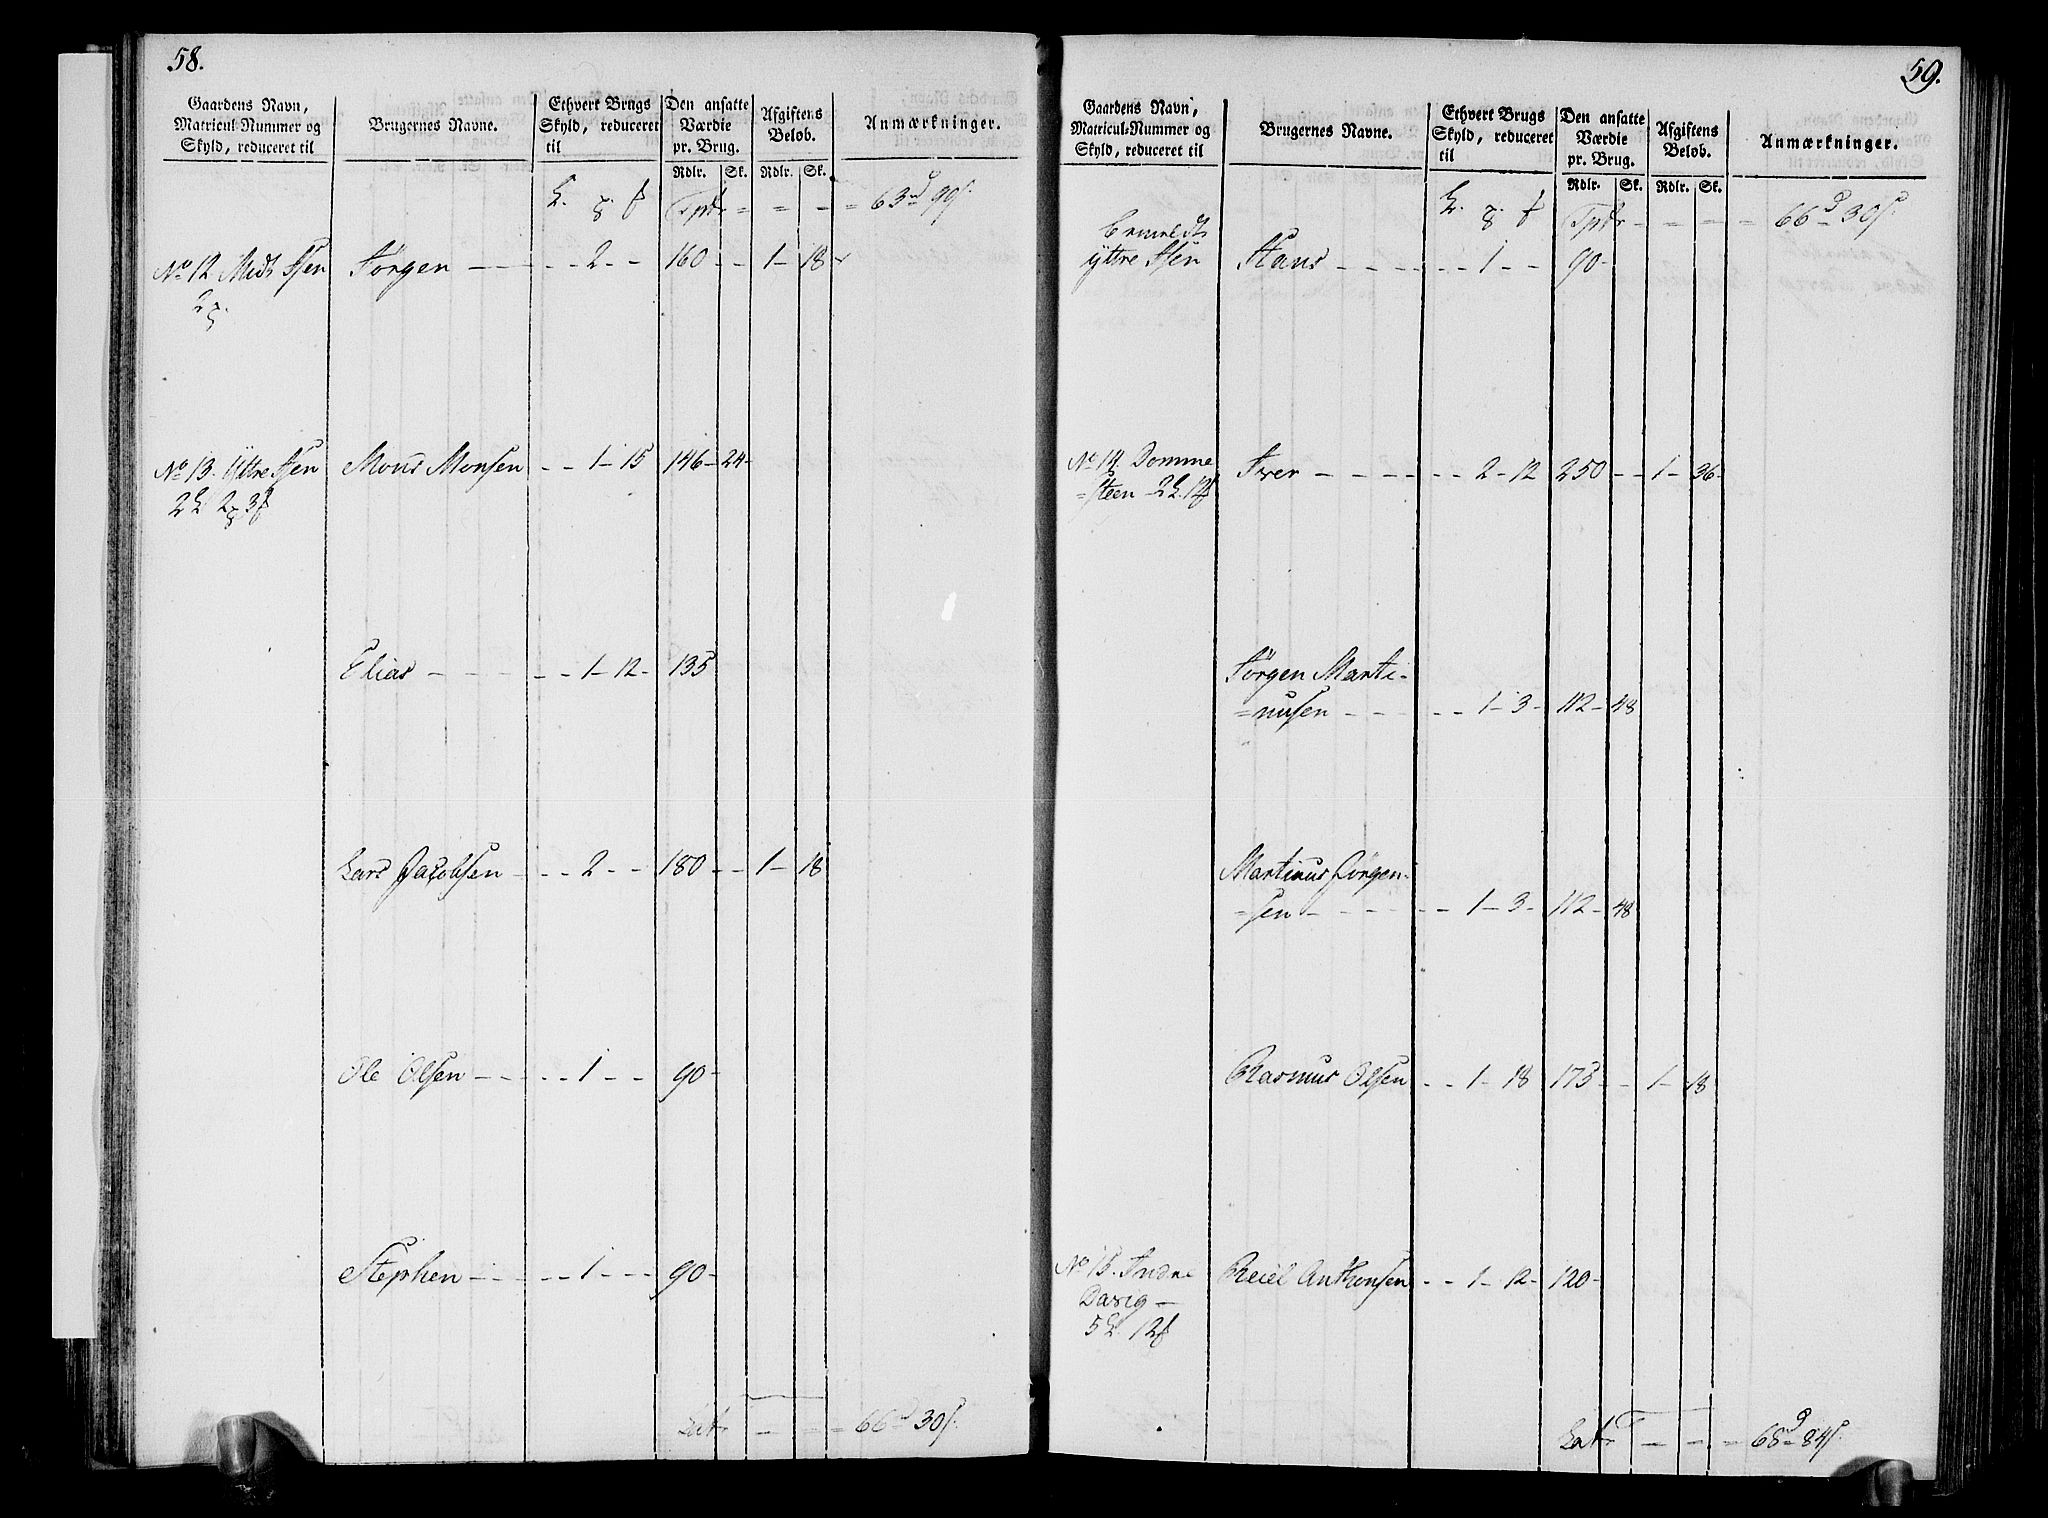 58.
Gaardens Navn, Matricul-Nummer og Skyld, reduceret til | Brugernes Navne. | Ethvert Brugs Skyld, reduceret til | Den ansatte Værdie pr. Brug. | Afgiftens Beløb. | Anmærkninger.
Rdlr. Sk. Rdlr. Sk.
Tptr = = - = 63
No 12 Midt Isen Jørgen - - - - 2 - - 160 - - 1 - 18
2
No 13. Yttre Isen Mons Monsen - - 1 - 15 146 - 24 -
2 2 3
Elias - - - - - 1 - 12 - 135
Lars Jacobsen - - - 2 - - 180 - - 1 - 18
Ole Olsen - - - - - 1 - - 90 -
Stephen - - - - - 1 - - - 90 -
Latr - = = 66 30
59.
Gaardens Navn, Matricul-Nummer og Skyld, reduceret til | Brugernes Navne. | Ethvert Brugs Skyld, reduceret til | Den ansatte Værdie pr. Brug. | Afgiftens Beløb. | Anmærkninger.
Rdlr. Sk. Rdlr. Sk.
Tptr = - - = 66 30
yttre Isen Hans - - - - - - 1 - - 90 -
No 14 Domme
=steen 2 12 Iver - - - - - - 2 - 12 250 - - 1 - 36 -
Jørgen Marti-
=nusen - - - - - 1 - 3 - 112 - 48
Martinus Jörgen-
=sen - - - - - - 1 - 3 - 112 - 48
Rasmus Olsen - - 1 - 18 175 - - 1 - 18
No 15. Indre Reiel Anthonsen - - 1 - 12 - 120 -
5 12
Latr - - = 68 84